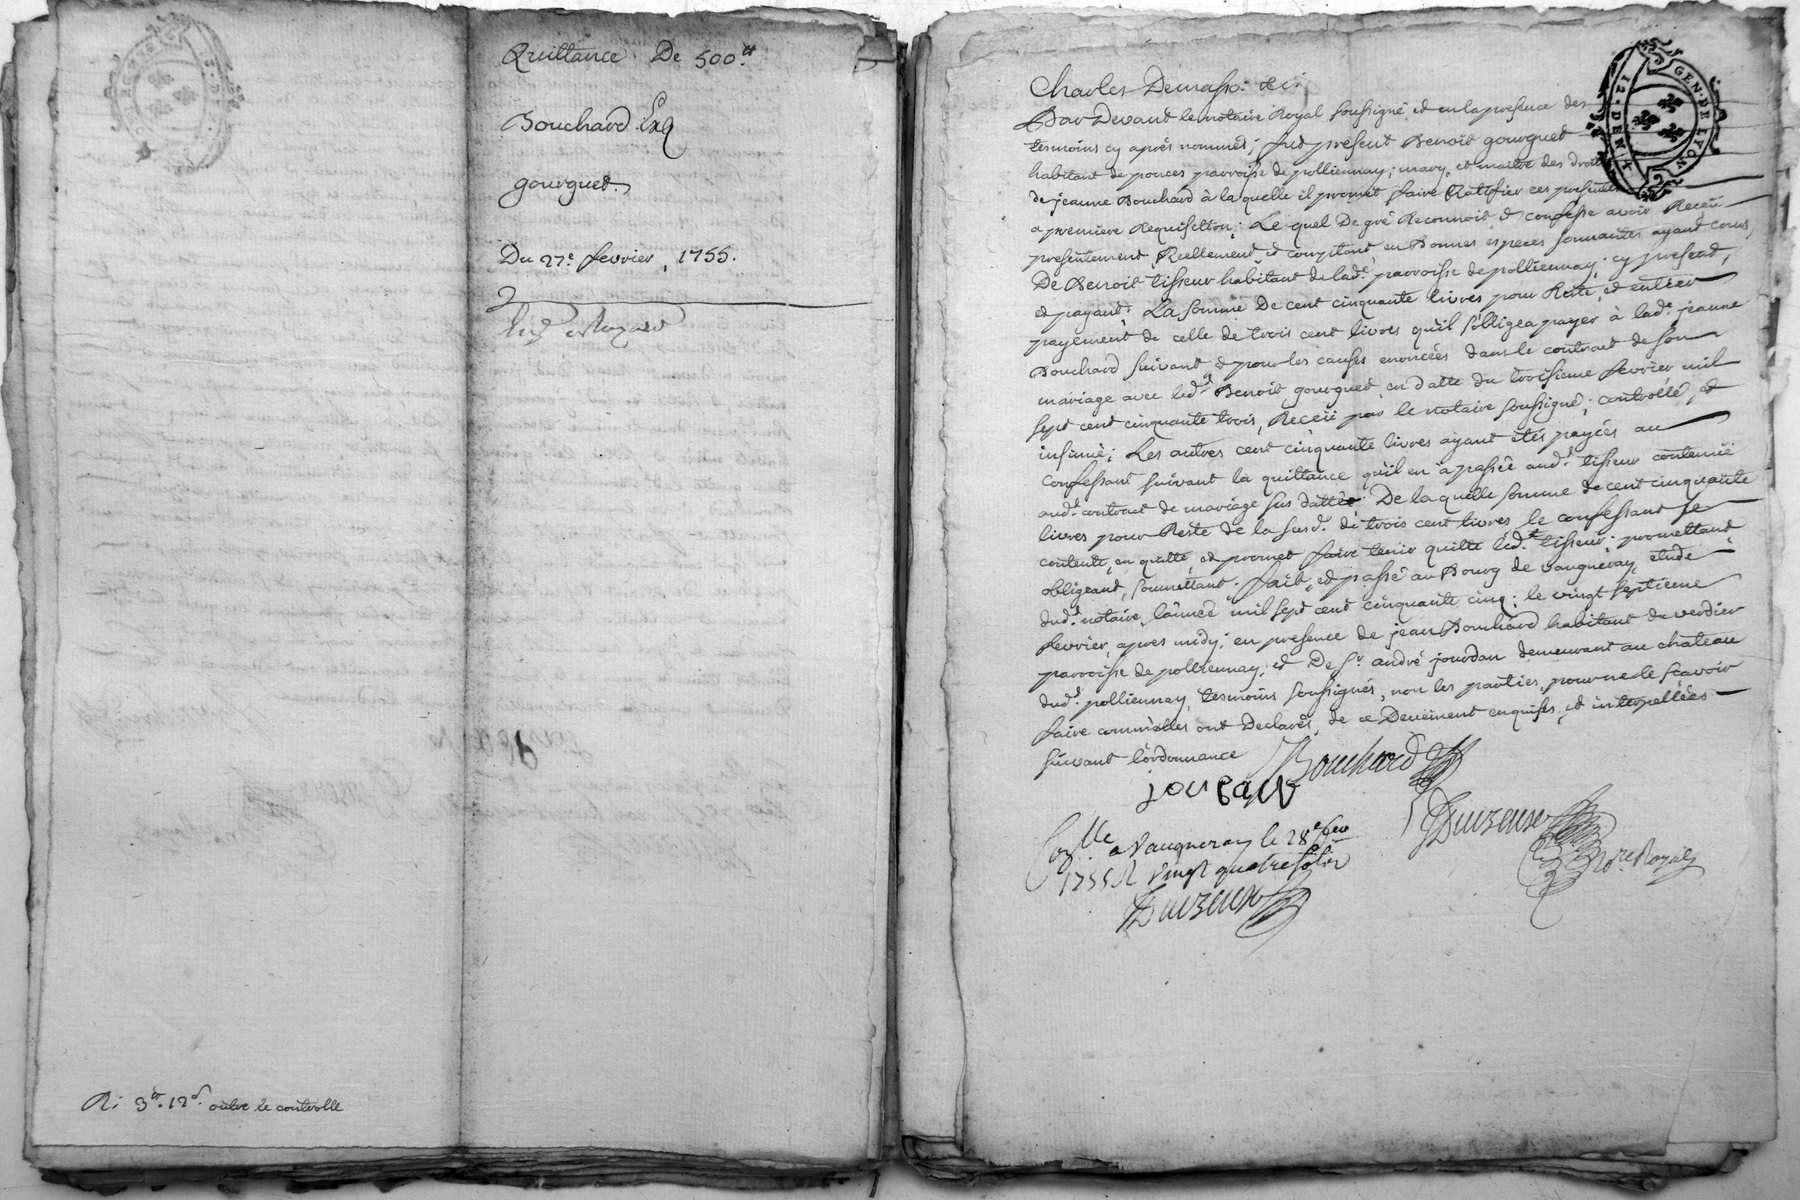 Quittance De 500ᵗᵗ
Bouchard Esq
gourguet
Du 27ᵉ fevrier 1755.
R: 3ᵗᵗ 12ˢ outre le controlle
Charles Demasso &c:
Par Devant le notaire Royal soussigné, et en la presence des
tesmoins cy aprés nommés; fut present Benoit gourguet
habitant de ponces parroisse de pollienay; mary, et maitre des droits
de jeanne Bouchard à la quelle il promet faire Ratifier ces presentes
a premiere Requisition; Le quel De gré Reconnoit et confesse avoir Receü
presentement Réellement et comptant en Bonnes especes sonnantes ayant cours,
De Benoit tisseur habitant de ladᵉ parroisse de polliennay; cy present,
et payant; La somme De cent cinquante livres pour Reste, et entier
payement de celle de trois cent livres qu'il s'obligea payer à ladᵉ jeanne
Bouchard suivant et pour les causes enoncées dans le contract de son
mariage avec ledᵗ Benoit gourguet en datte du troisieme fevrier mil
sept cent cinquante trois, Receü par le notaire soussigné; controllé, et
insinué; Les autres cent cinquante livres ayant étés payées au
confessant suivant la quittance qu'il en a passée audᵗ tisseur contenüe
audᵗ contract de mariage sus datté: De laquelle somme de cent cinquante
livres pour Reste de la susdᵉ de trois cent livres le confessant se
contente, en quitte, et promet faire tenir quitte ledᵗ tisseur; promettant,
obligeant, soumettant. fait, et passé au Bourg de vaugneray, etude
dudᵗ notaire, l'année mil sept cent cinquante cinq; le vingt septieme
fevrier, apres midy; en presence de jean Bouchard habitant du verdier
parroisse de polliennay; et De sʳ andré jourdan demeurant au chateau
dudᵗ polliennay, tesmoins soussignés, non les parties, pour ne le scavoir
faire comm'elles ont Declarés, de ce Deuëment enquises, et interpellées
suivant l'ordonnance
Bouchard
jourdan
Duvzeux
noʳᵉ Royal
Conᵗˡˡᵉ a Vaugneray le 28ᵉ fev
1755 R vingt quatre sols
Duvzeux
GEN·DE LYON